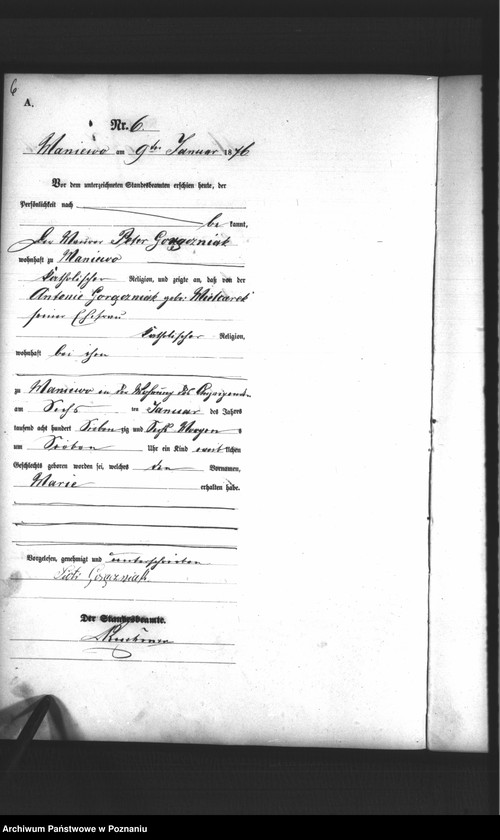 6
A.
Nr. 6.
Maniewo am 9ten Januar 1876
Vor dem unterzeichneten Standesbeamten erschien heute, der
Persönlichkeit nach
be kannt,
Der Maurer Peter Gorgezniak
wohnhaft zu Maniewo
katholischer Religion, und zeigte an, daß von der
Antonie Gorgezniak geb.
seiner Ehefrau
katholischer Religion,
wohnhaft bei ihm
zu Maniewo in der Wohnung des
am Sechs ten Januar des Jahres
tausend acht hundert Sieben zig und Sechs Morgen s
um Sieben Uhr ein Kind weib lichen
Geschlechts geboren worden sei, welches den Vornamen,
Marie
erhalten habe.
Vorgelesen, genehmigt und unterschrieben
Piotr Gorgezniak
Der Standesbeamte.
Archiwum Państwowe w Poznaniu